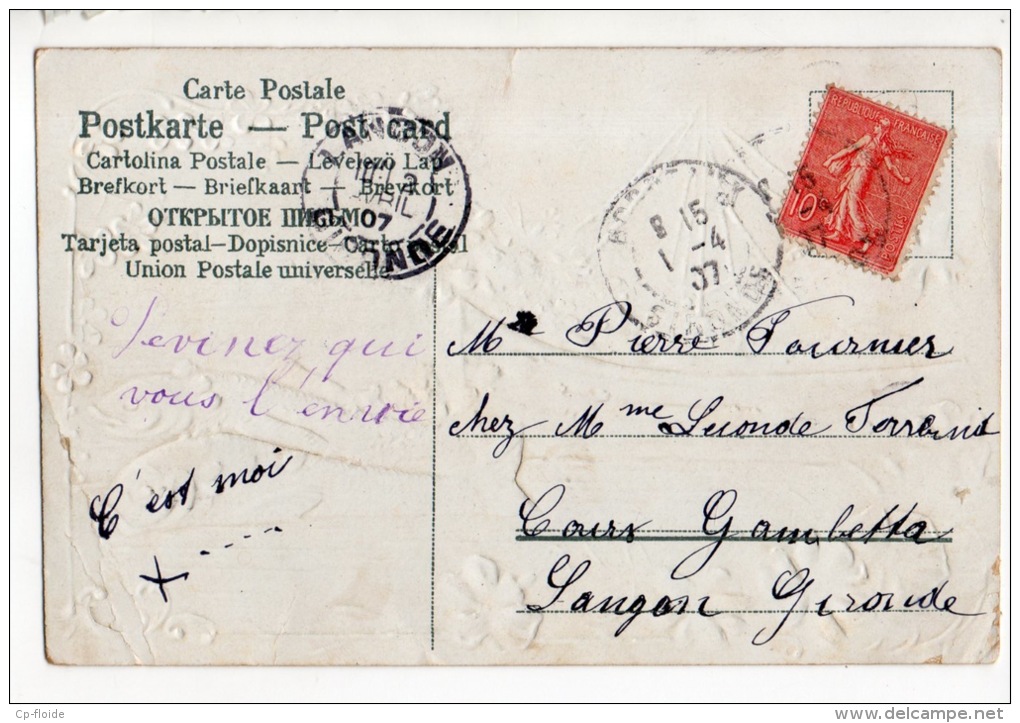 Carte Postale
Postkarte — Postcard
Cartolina Postale — Levelező Lap
Brefkort — Briefkaart — Brevkort
ОТКРЫТОЕ ПИСЬМО
Tarjeta postal—Dopisnice—Carta postal
Union Postale universelle
LANGON
2
AVRIL
07
GIRONDE
BORDEAUX
8 15
1 - 4
07
GIRONDE
REPUBLIQUE FRANÇAISE
10
POSTES
Devinez qui
vous l'envoie
C'est moi
+ ----
Mr Pierre Fournier
chez Mme
Cours Gambetta
Langon Gironde
Cp-floide
www.delcampe.net